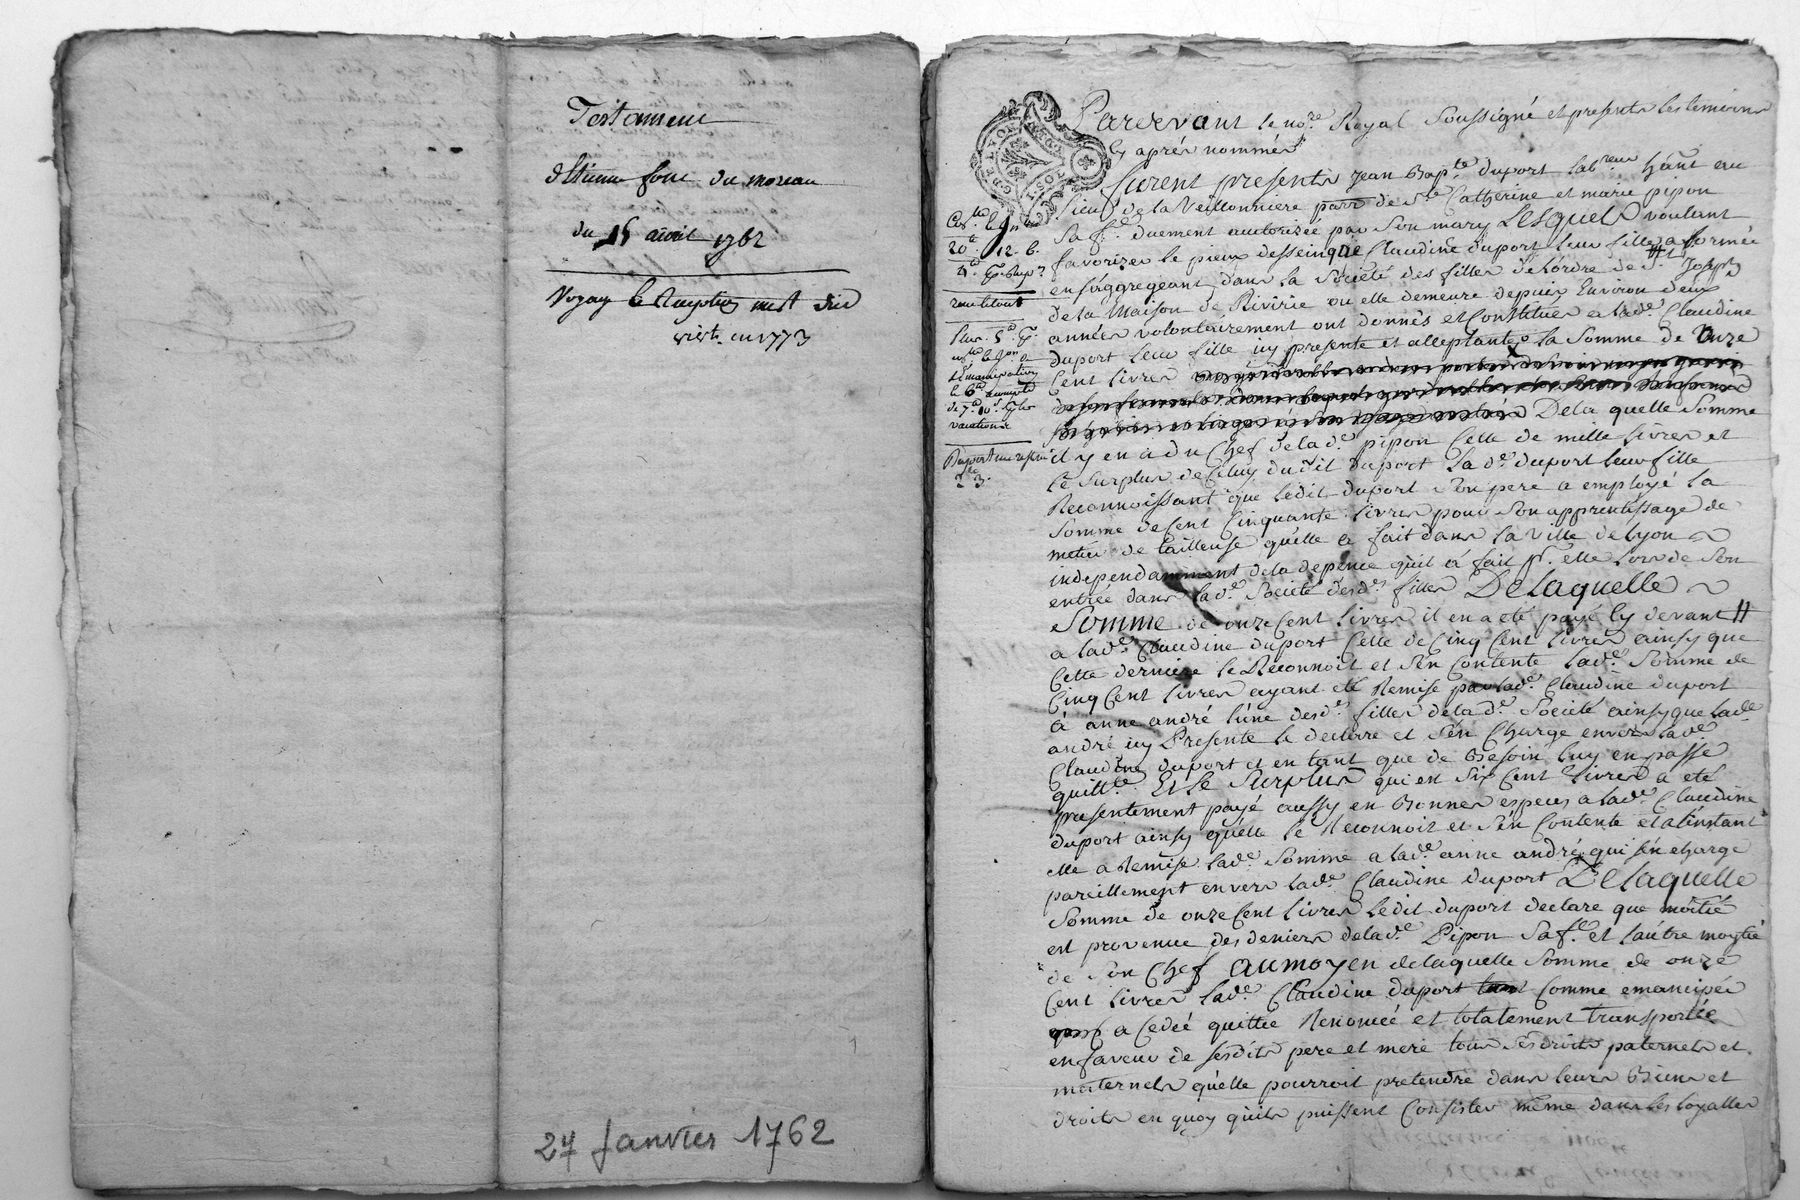 Testament
d'Etienne font du moreau
du 15 aoust 1762
Voyay la
en 1773
24 Janvier 1762
Pardevant le no.re Royal Soussigné et presents les temoins
Cy aprés nommés
furent presents Jean Bap.te duport lab.reur h'ant au
lieu de la Veillonniere parr de S.te Catherine et marie pipon
Sa f.e duement autorizée par son mary Lesquels voulant
favorizer le pieux desseinque Claudine duport leur fille a formée
en s'aggregeant dans la Societé des filles de l'ordre de S.t Joseph
de la Maison de Rivirie ou elle demeure depuis Environ deux
années volontairement ont donnés et Constitués a lad.e Claudine
duport leur fille icy presente et acceptante la Somme de Onze
Cent livres
De la quelle Somme
il y en a du Chef de lad.e pipon Celle de mille livres et
le Surplus de Celuy dudit duport lad.e duport leur fille
Reconnoissant que ledit duport Son pere a employé la
Somme de Cent Cinquante livres pour Son apprentissage de
metier de tailleuse qu'elle a fait dans la Ville de Lyon
independamment dela depence qu'il à fait p.r elle lors de Son
entrée dans lad.e Societé desd.es filles De laquelle
Somme de onze Cent livres il en a eté payé Cy devant
a lad.e Claudine duport Celle de Cinq Cent livres ainsy que
Cette derniere le Reconnoit et s'en Contente lad.e Somme de
Cinq Cent livres ayant eté Remise par lad.e Claudine duport
à anne andré l'une desd.es filles delad.e Societé ainsy que lad.e
andré icy Presente le declare et s'en Charge envers lad.e
Claudine duport et en tant que de Besoin luy en passe
quitt.ce Et le Surplus qui est Six Cent livres a eté
presentement payé aussy en Bonnes especes a lad.e Claudine
duport ainsy qu'elle le Reconnoit et s'en Contente et a l'instant
elle a Remise lad.e Somme a lad.e anne andré qui s'en charge
pareillement envers lad.e Claudine duport De laquelle
Somme de onze Cent livres ledit duport declare que moitié
est provenue des deniers delad.e Pipon Sa f.e et l'autre moytié
de Son Chef au moyen de laquelle Somme de onze
Cent livres lad.e Claudine duport Comme emancipée
a Cedée quittée Renoncée et totalement transportée
en faveur de sesdits pere et mere tous Ses droits paternels et
maternels qu'elle pourroit pretendre dans leurs Biens et
droits en quoy qu'ils puissent Consister même dans les loyalles